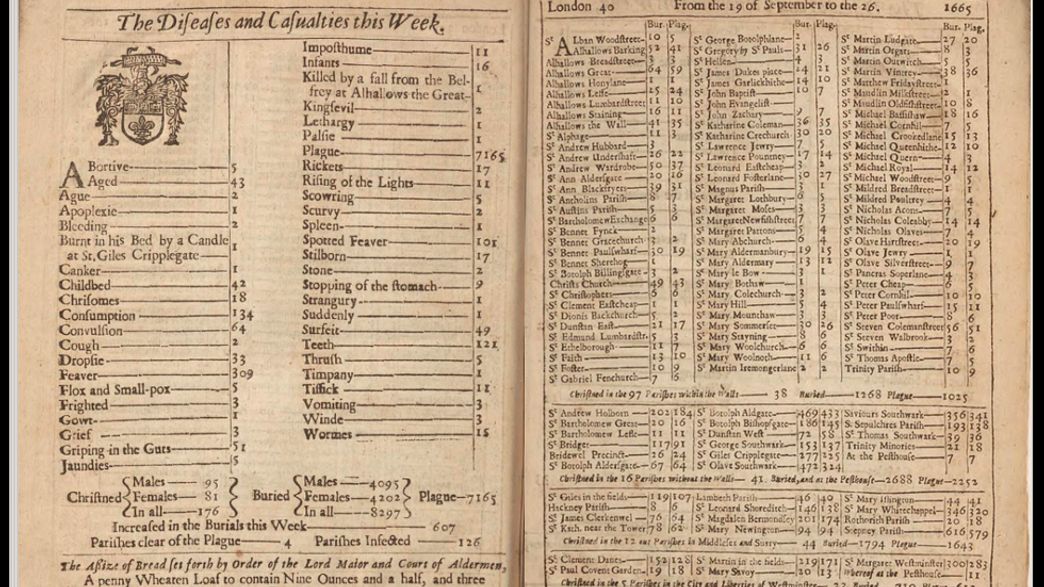 The Diſeaſes and Caſualties this Week.
ABortive 5
Aged 43
Ague 2
Apoplexie 1
Bleeding 2
Burnt in his Bed by a Candle
at St. Giles Cripplegate 1
Canker 1
Childbed 42
Chriſomes 18
Conſumption 134
Convulſion 64
Cough 2
Dropſie 33
Feaver 309
Flox and Small-pox 5
Frighted 3
Gowt 1
Grief 3
Griping in the Guts 51
Jaundies 5
Impoſthume 11
Infants 16
Killed by a fall from the Bel-
frey at Alhallows the Great 1
Kingſevil 2
Lethargy 1
Palſie 1
Plague 7165
Rickets 17
Riſing of the Lights 11
Scowring 5
Scurvy 2
Spleen 1
Spotted Feaver 101
Stilborn 17
Stone 2
Stopping of the ſtomach 9
Strangury 1
Suddenly 1
Surfeit 49
Teeth 121
Thruſh 5
Timpany 1
Tiſſick 11
Vomiting 3
Winde 3
Wormes 15
Chriſtned Males 95 Females 81 In all 176
Buried Males 4095 Females 4202 In all 8297
Plague 7165
Increaſed in the Burials this Week 607
Pariſhes clear of the Plague 4 Pariſhes Infected 126
The Aſſize of Bread ſet forth by Order of the Lord Maior and Court of Aldermen,
A penny Wheaten Loaf to contain Nine Ounces and a half, and three
London 40 From the 19 of September to the 26. 1665
Bur. Plag.
St ALban Woodſtreet 10 5
Alhallows Barking 52 41
Alhallows Breadſtreet 3 3
Alhallows Great 64 59
Alhallows Honylane 1 1
Alhallows Leſſe 25 24
Alhallows Lumbardſtreet 11 10
Alhallows Staining 16 11
Alhallows the Wall 41 35
St Alphage 11 3
St Andrew Hubbard 3
St Andrew Underſhaft 26 22
St Andrew Wardrobe 50 37
St Ann Alderſgate 20 16
St Ann Blackfryers 39 31
St Antholins Pariſh 8 7
St Auſtins Pariſh 5 3
St Bartholomew Exchange 6 6
St Bennet Fynck 2
St Bennet Gracechurch 3 2
St Bennet Paulſwharf 30 19
St Bennet Sherehog 1
St Botolph Billingſgate 3 2
Chriſts Church 49 43
St Chriſtophers 6 6
St Clement Eaſtcheap 1 1
St Dionis Backchurch 5 2
St Dunſtan Eaſt 21 17
St Edmund Lumbardſtr. 5 3
St Ethelborough 11 7
St Faith 13 10
St Foſter 10 9
St Gabriel Fenchurch 7 6
Bur. Plag.
St George Botolphlane 2
St Gregory by St Pauls 31 26
St Hellen 4 3
St James Dukes place 24 21
St James Garlickhithe 14 10
St John Baptiſt 10 7
St John Evangeliſt
St John Zachary 9 7
St Katharine Coleman 36 35
St Katharine Crechurch 30 20
St Lawrence Jewry 7 5
St Lawrence Pountney 17 14
St Leonard Eaſtcheap 3 2
St Leonard Foſterlane 30 27
St Magnus Pariſh 3 1
St Margaret Lothbury 6 5
St Margaret Moſes 3 3
St Margaret Newfiſhſtreet 7 7
St Margaret Pattons 5 4
St Mary Abchurch 6 4
St Mary Aldermanbury 19 15
St Mary Aldermary 13 12
St Mary le Bow 3 1
St Mary Bothaw 1
St Mary Colechurch 3 2
St Mary Hill 5 4
St Mary Mounthaw 3 3
St Mary Sommerſet 30 26
St Mary Stayning 8 6
St Mary Woolchurch 6 6
St Mary Woolnoth 11 6
St Martin Iremongerlane 2 2
Bur. Plag.
St Martin Ludgate 27 20
St Martin Orgars 8 3
St Martin Outwitch 5 5
St Martin Vintrey 38 36
St Matthew Fridayſtreet 1
St Maudlin Milkſtreet 2 1
St Maudlin Oldfiſhſtreet 10 8
St Michael Baſſiſhaw 18 16
St Michael Cornhil 7 5
St Michael Crookedlane 15 13
St Michael Queenhithe 12 10
St Michael Quern 4 3
St Michael Royal 14 12
St Michael Woodſtreet 9 5
St Mildred Breadſtreet 1 1
St Mildred Poultrey 4 4
St Nicholas Acons 7 5
St Nicholas Coleabby 14 14
St Nicholas Olaves 7 4
St Olave Hartſtreet 20 19
St Olave Jewry 1 1
St Olave Silverſtreet 9 7
St Pancras Soperlane 4 3
St Peter Cheap 6 5
St Peter Cornhil 10 10
St Peter Paulſwharf 15 11
St Peter Poor 8 6
St Steven Colemanſtreet 56 51
St Steven Walbrook 3 2
St Swithin 7 6
St Thomas Apoſtle 7 5
Trinity Pariſh 10 9
Chriſtned in the 97 Pariſhes within the Walls 38 Buried 1268 Plague 1025
St Andrew Holborn 202 184
St Bartholomew Great 20 16
St Bartholomew Leſſe 11 11
St Bridget 117 91
Bridewel Precinct 26 24
St Botolph Alderſgate 67 64
St Botolph Aldgate 469 433
St Botolph Biſhopſgate 186 145
St Dunſtan Weſt 72 58
St George Southwark 153 137
St Giles Cripplegate 277 225
St Olave Southwark 472 324
Saviours Southwark 356 341
St Sepulchres Pariſh 193 138
St Thomas Southwark 39 36
Trinity Minories 21 18
At the Peſthouſe 7 7
Chriſtned in the 16 Pariſhes without the Walls 41. Buried, and at the Peſthouſe 2688 Plague 2252
St Giles in the fields 119 107
Hackney Pariſh 8 6
St James Clerkenwel 76 64
St Kath. near the Tower 78 62
Lambeth Pariſh 46 40
St Leonard Shoreditch 146 138
St Magdalen Bermondſey 201 174
St Mary Newington 94 94
St Mary Iſlington 44 41
St Mary Whitechappel 346 320
Rothorith Pariſh 20 18
Stepney Pariſh 616 579
Chriſtned in the 12 out Pariſhes in Middleſex and Surry 44 Buried 1794 Plague 1643
St Clement Danes 152 128
St Paul Covent Garden 19 18
St Martin in the fields 219 171
St Mary Savoy
St Margaret Weſtminſter 300 283
Whereof at the Peſthouſe 11
Chriſtned in the 5 Pariſhes in the City and Liberties of Weſtminſter